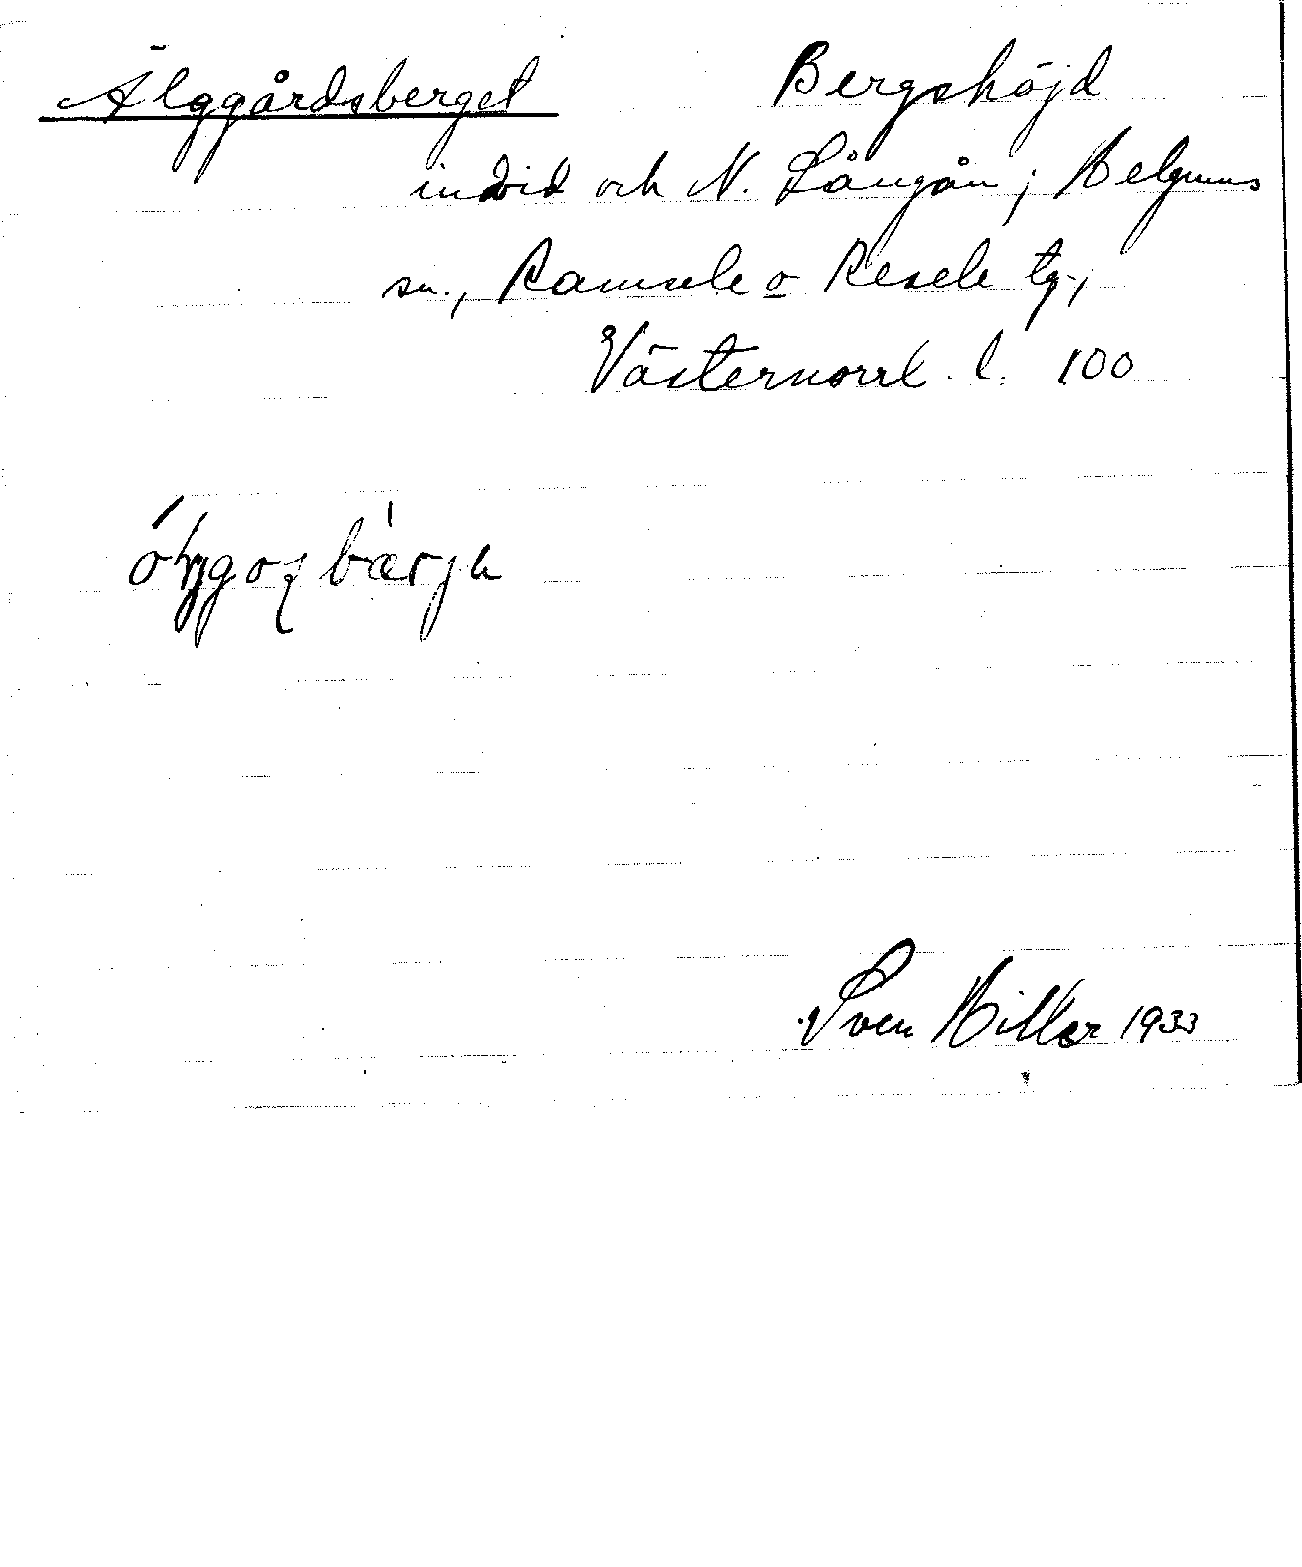 Älggårdsberget Bergshöjd
invid och N. Långån; Helgums
sn., Ramsele o Resele tg,
Västernorrl. l. 100
Sven Hiller 1933